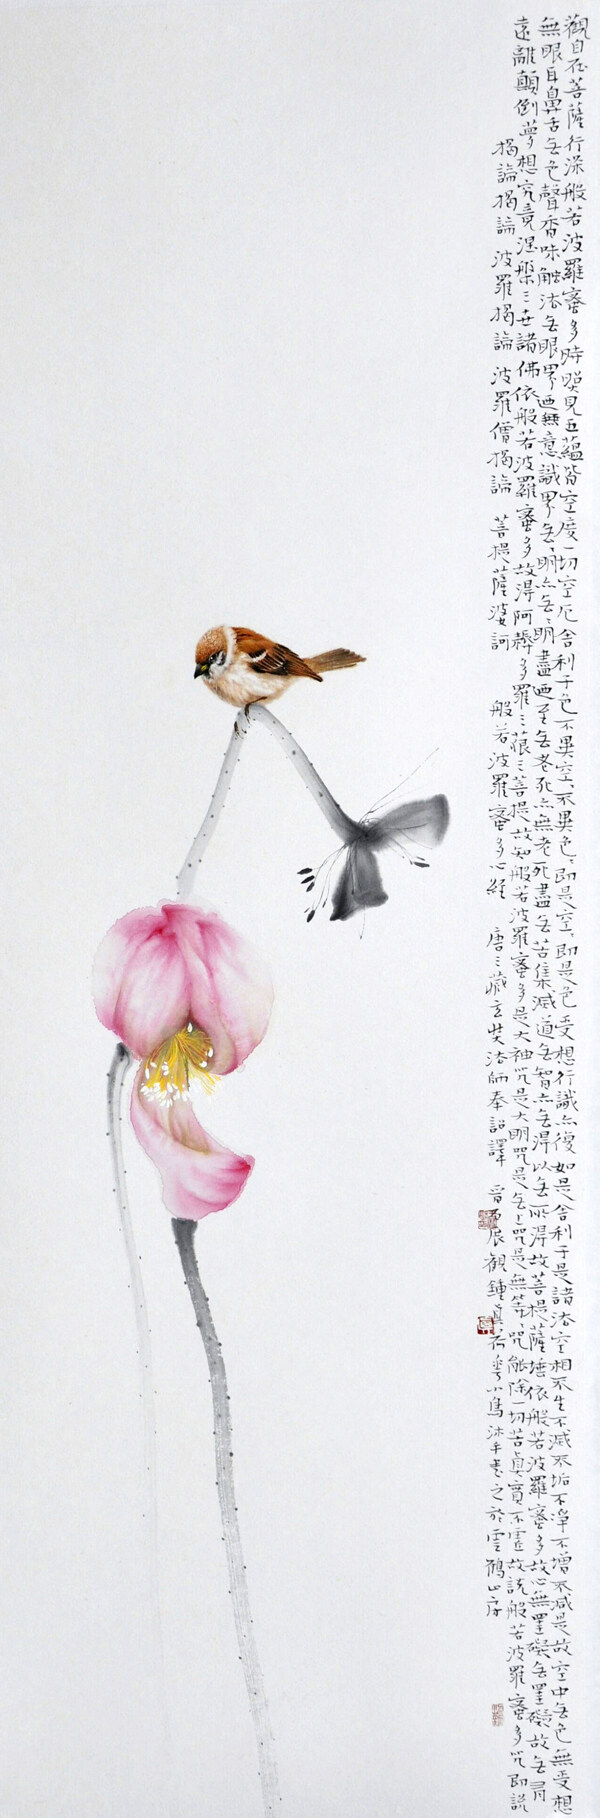 觀自在菩薩行深般若波羅蜜多時照見五蘊皆空度一切空厄舍利子色不異空〻不異色〻即是空〻即是色受想行識亦復如是舍利子是諸法空相不生不滅不垢不淨不增不減是故空中無色無受想
無眼耳鼻舌無色聲香味觸法無眼界迺無意識界無〻明亦無〻明盡迺至無老死亦無老死盡無苦集滅道無智亦無得以無所得故菩提薩埵依般若波羅蜜多故心無罣礙無罣礙故無有
遠離顛倒夢想究竟涅槃三世諸佛依般若波羅蜜多故得阿耨多羅三藐三菩提故知般若波羅蜜多是大神咒是大明咒是無上咒是無等〻咒能除一切苦真實不虛故說般若波羅蜜多咒即說
揭諦揭諦 波羅揭諦 波羅僧揭諦 菩提薩婆訶 般若波羅蜜多心經 唐三藏玄奘法師奉詔譯 展觀鍾真 小鳥沐手書之於雲鶴山房